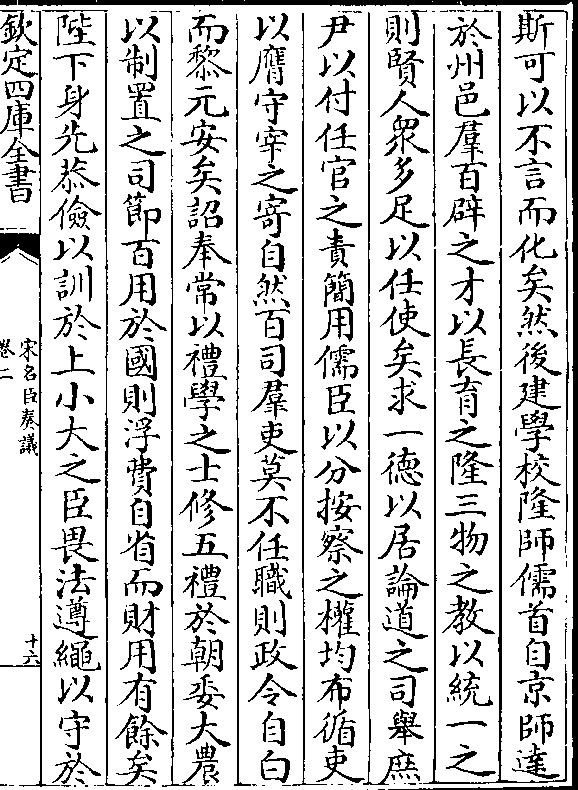 斯可以不言而化矣然後建學校隆師儒首自京師達
於州邑羣百辟之才以長育之隆三物之教以統一之
則賢人衆多足以任使矣求一德以居論道之司舉庶
尹以付任官之責簡用儒臣以分按察之權均布循吏
以膺守宰之寄自然百司羣吏莫不任職則政令自白
而黎元安矣詔奉常以禮學之士修五禮於朝委大農
以制置之司節百用於國則浮費自省而財用有餘矣
陛下身先恭儉以訓於上小大之臣畏法遵繩以守於
欽定四庫全書
宋名臣奏議
卷二
十六